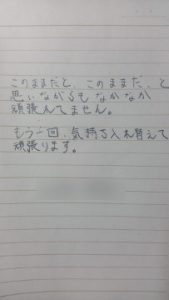 このままだと、このままだ、と
思いながらもなかなか
頑張れてません。
もう一回、気持ち入れ替えて
頑張ります。